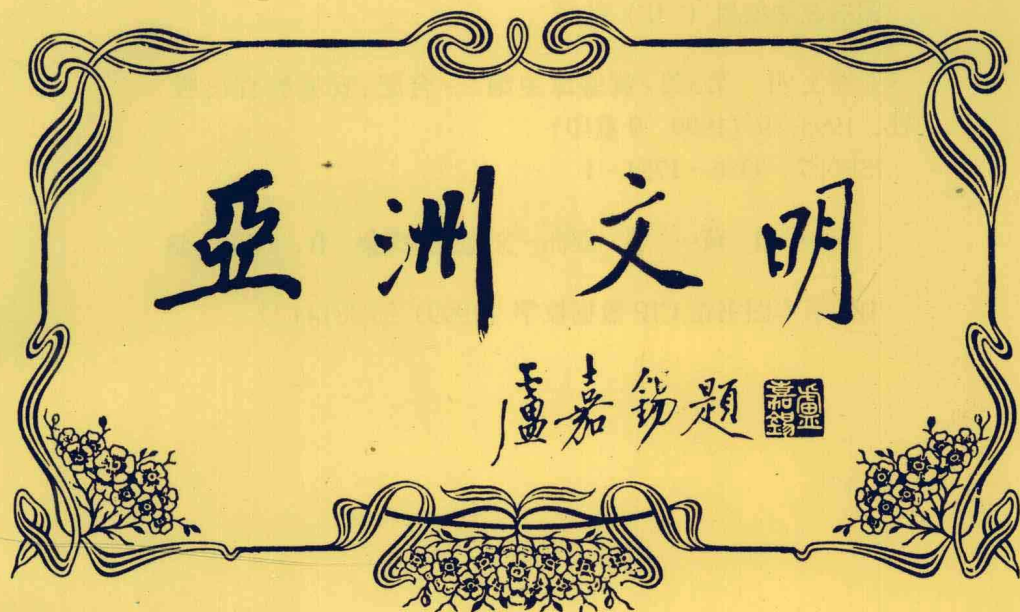 亞洲文明
盧嘉錫題
盧嘉錫